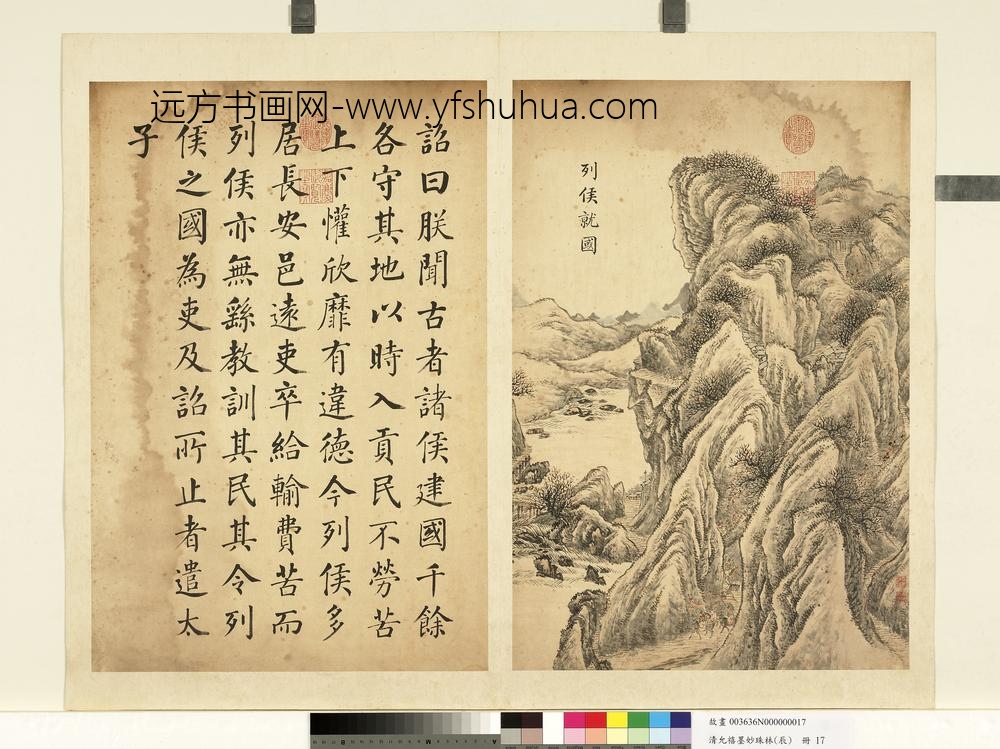 远方书画网-www.yfshuhua.com
列侯就國
詔曰朕聞古者諸侯建國千餘
各守其地以時入貢民不勞苦
上下懽欣靡有違德今列侯多
居長安邑遠吏卒給輸費苦而
列侯亦無繇教訓其民其令列
侯之國為吏及詔所止者遣太
子
故畫 003636N000000017
清允禧墨妙珠林(辰) 冊 17